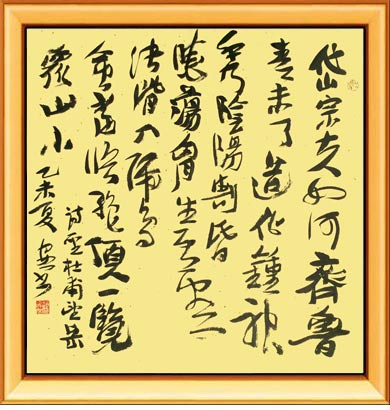 岱宗夫如何齊魯
青未了造化鍾神
秀陰陽割昏
曉蕩胸生曾雲
決眥入歸鳥
會當凌絕頂一覽
眾山小
詩聖杜甫望岳
乙未夏
書